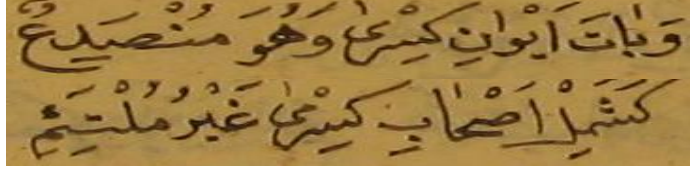 وَبَاتَ اَيْوَانِ كِسْرٰى وَهُوَ مُنْصَدِعٌ
كَشَمْلِ اَصْحَابِ كِسْرٰى غَيْرُ مُلْتَئِمِ